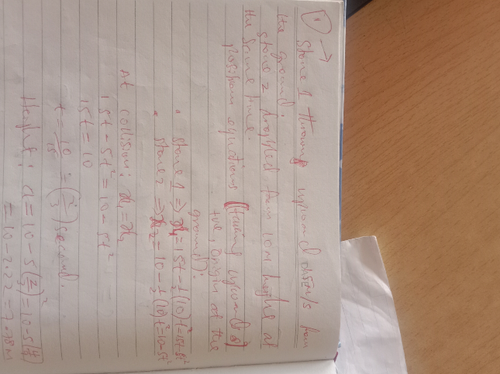 1) → Stone 1 thrown upward 15m/s from
the ground.
Stone 2 dropped from 10m height at
the same time.
position equations (taking upward
+ve, origin at the
ground):
• Stone 1 ⇒ x₁ = 15t - 1/2 (10)t² = 15t - 5t²
• Stone 2 ⇒ x₂ = 10 - 1/2 (10)t² = 10 - 5t²
At collision: x₁ = x₂
15t - 5t² = 10 - 5t²
15t = 10
t = 10/15 = (2/3) second.
Height: x = 10 - 5(2/3)² = 10 - 5(4/9)
= 10 - 2.22 = 7.78m